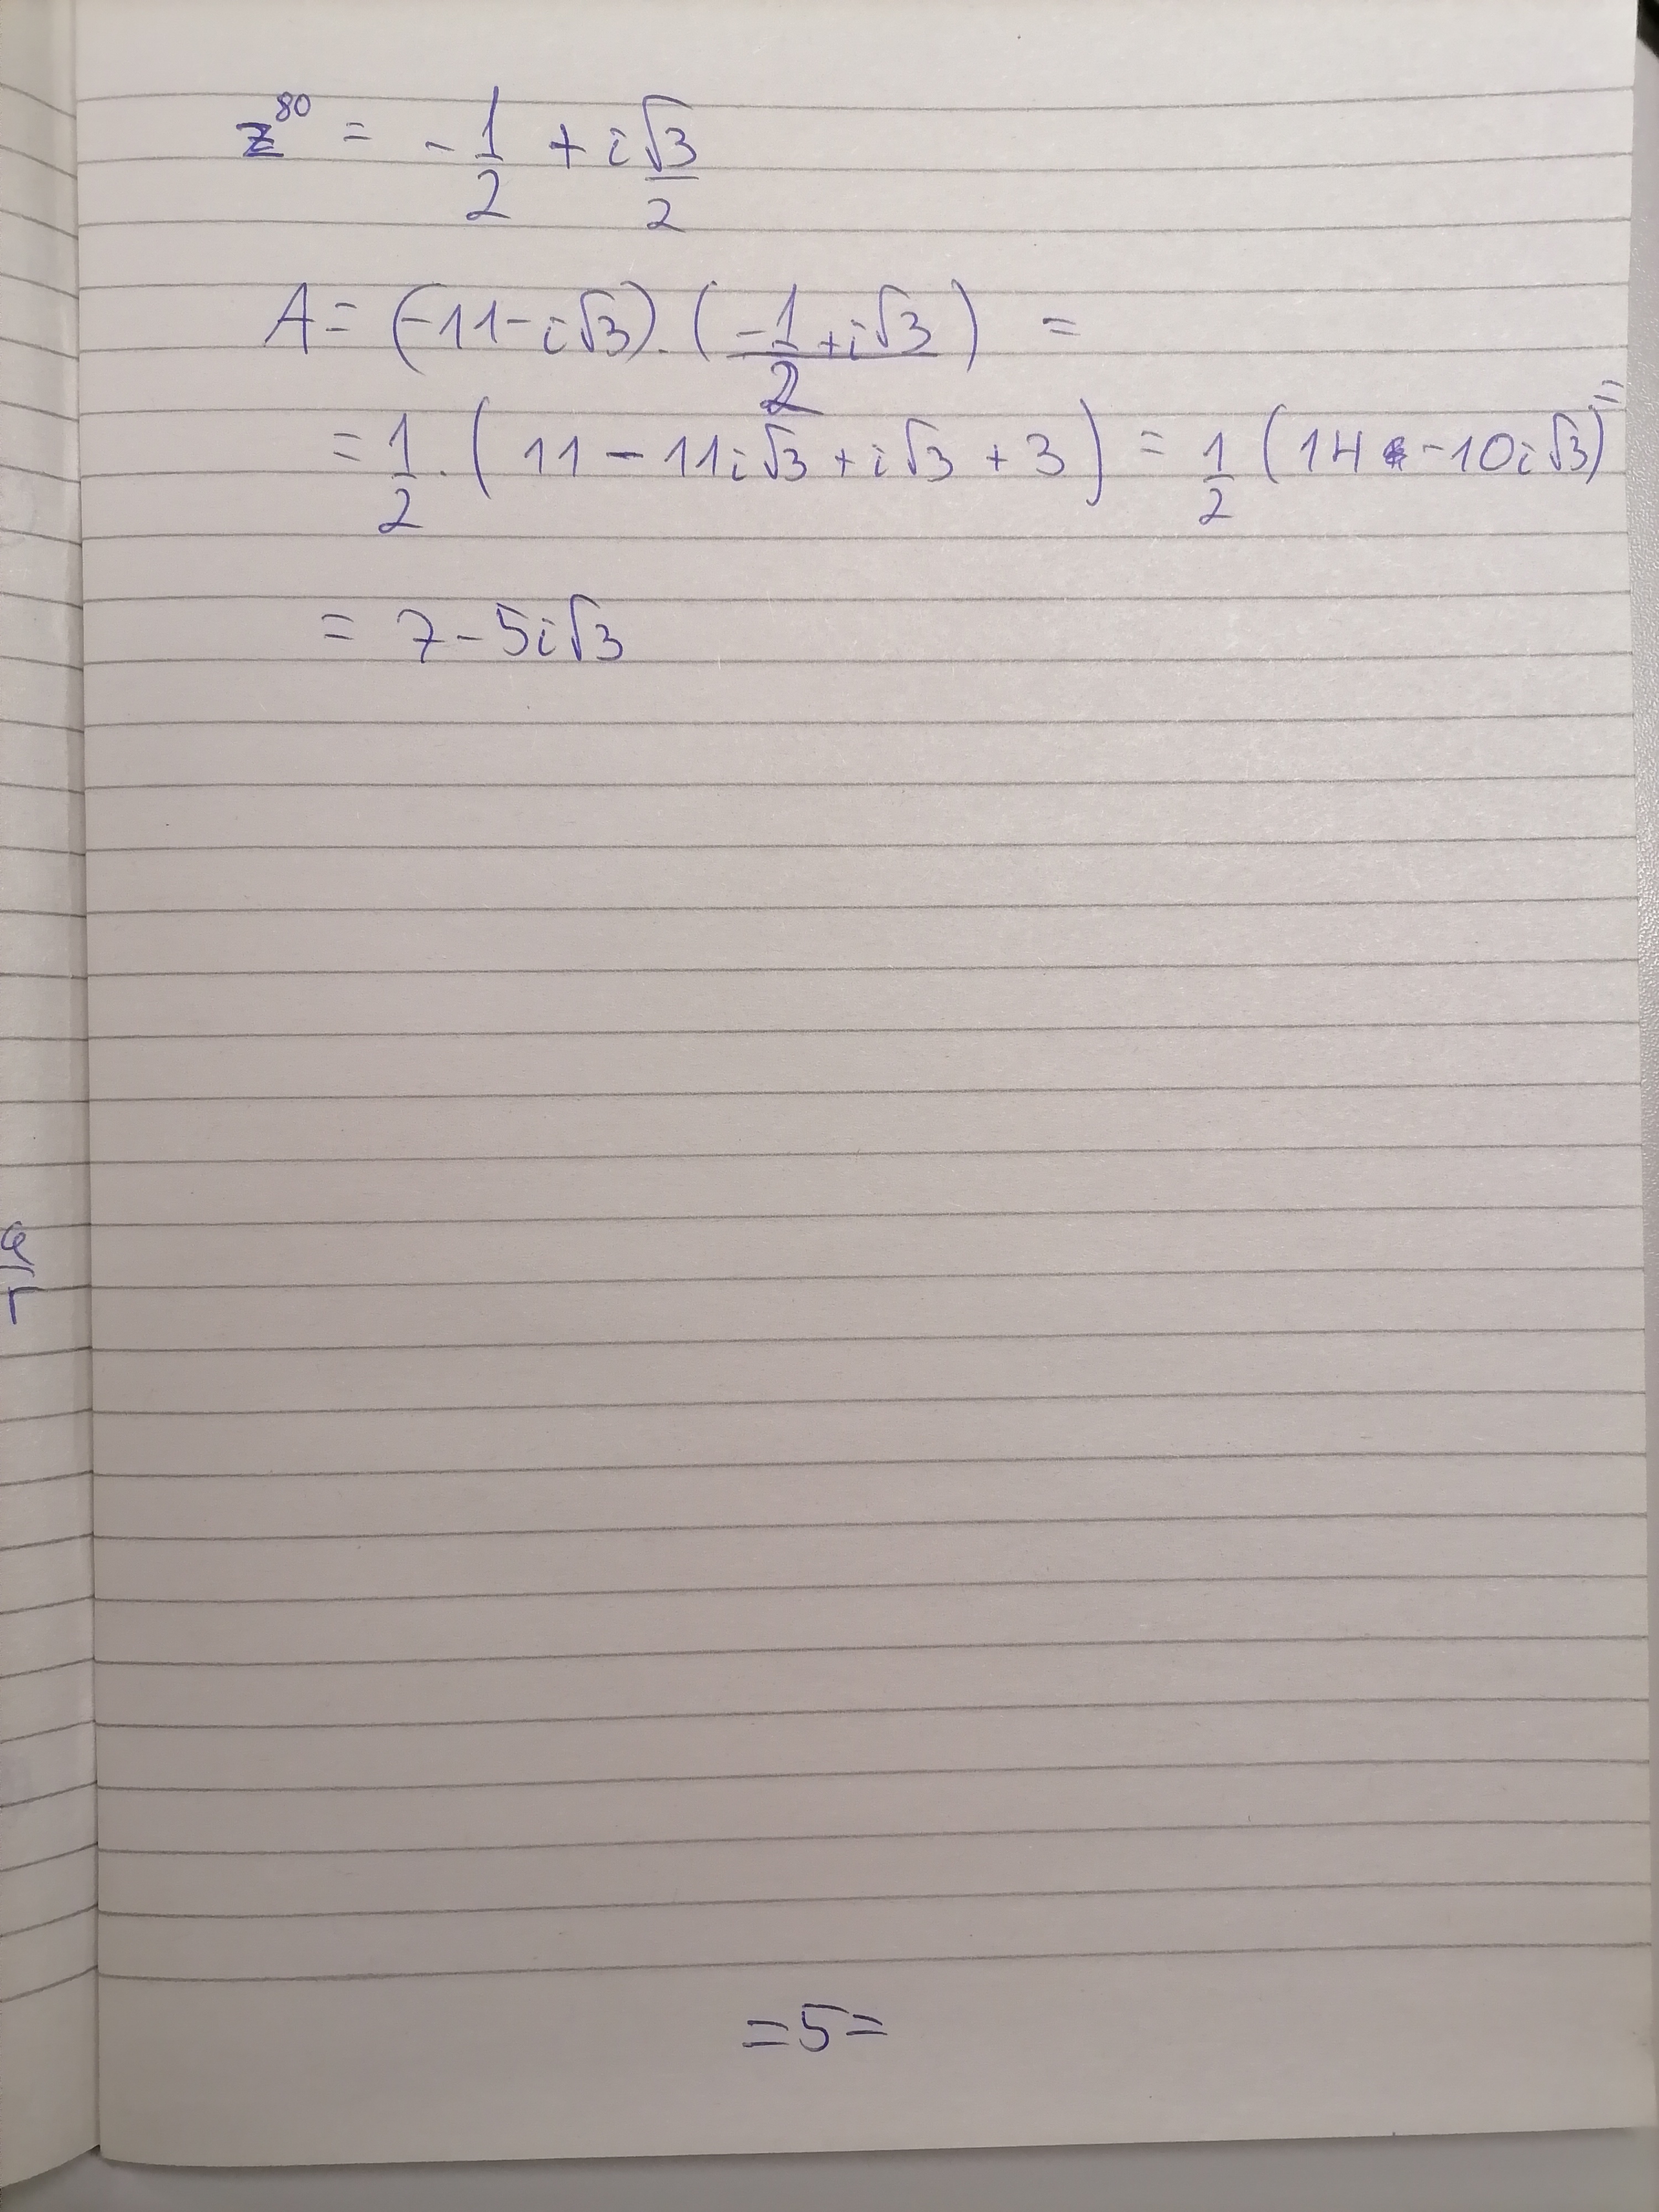 z^80 = -1/2 + i√3/2
A = (-11-i√3).(-1+i√3/2) =
= 1/2 . (11 - 11i√3 + i√3 + 3) = 1/2 (14 -10i√3) =
= 7-5i√3
=5=